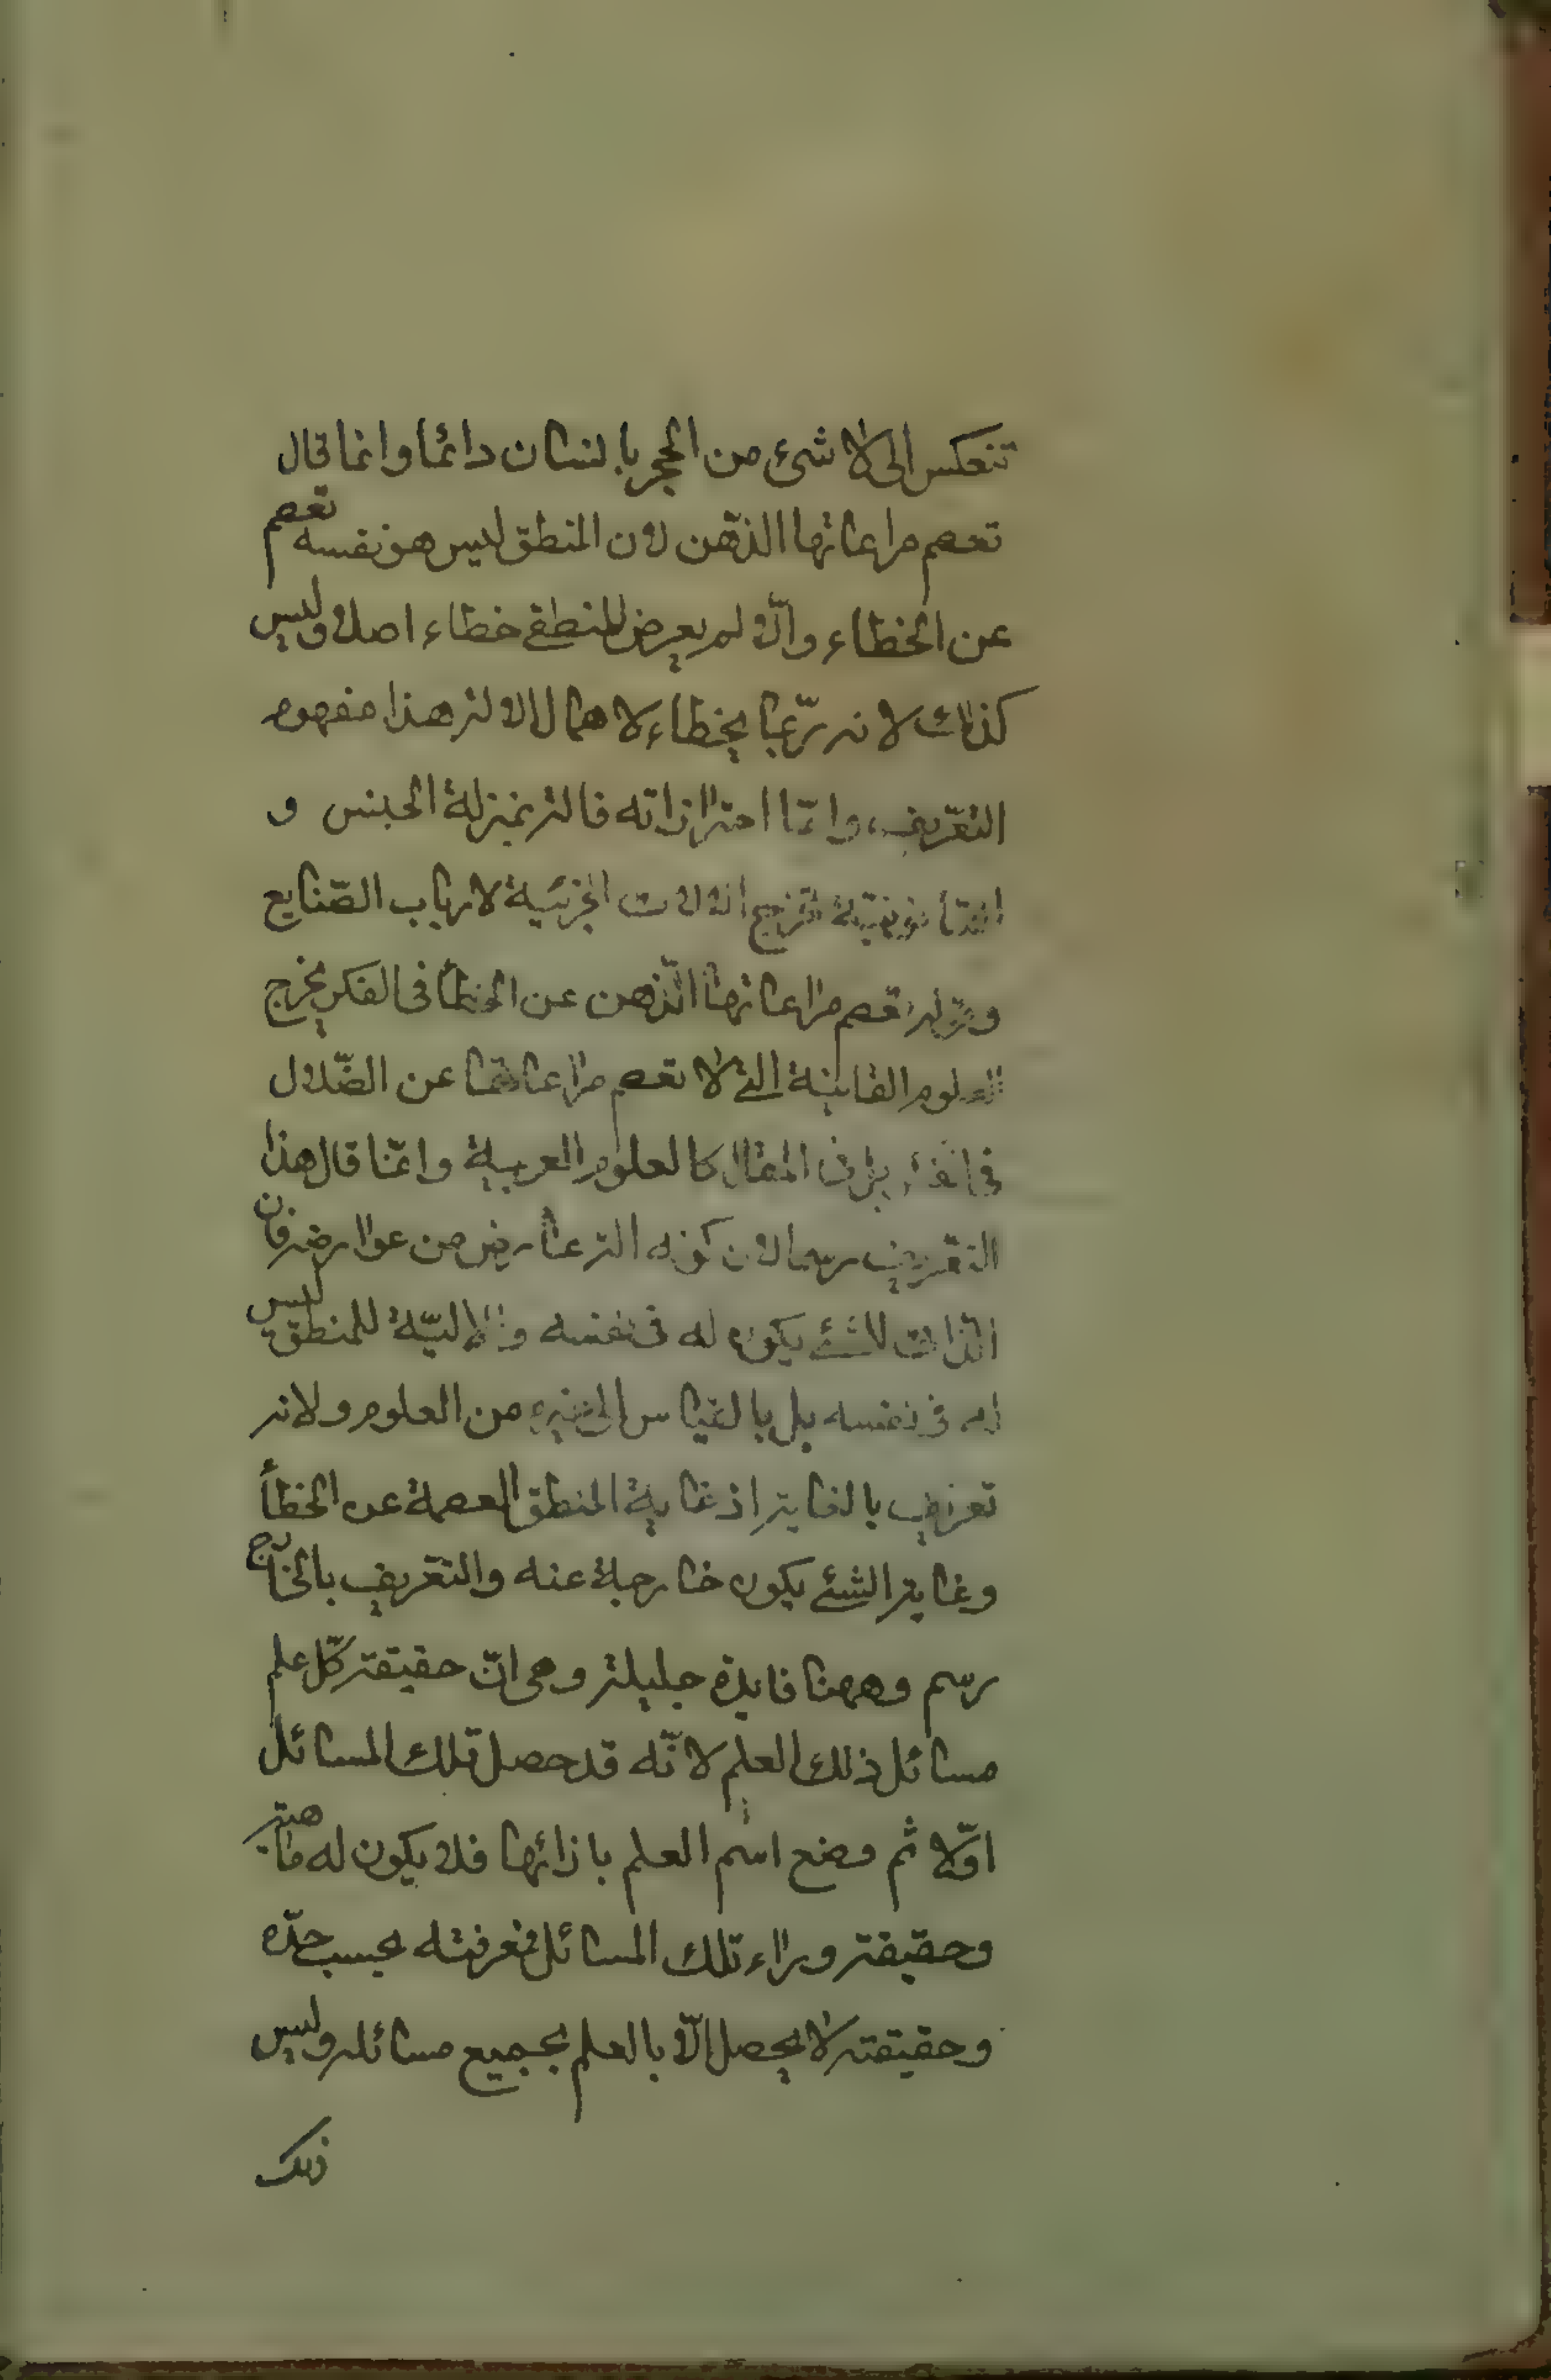 تنعكس الى لا شئ من الحجر بانسان دائما وانما قال
تعصم مراعاتها الذهن لان المنطق ليس هو نفسه تعصم
عن الخطاء والّا لم يعرض للمنطقى خطاء اصلا وليس
كذلك لانه ربّما يخطاء لاهمال الالة هذا مفهوم
التعريف، وامّا احترازاته فالة بمنزلة الجنس و
القانونيّة تخرج الالات الجزئية لارباب الصّنايع
وقوله تعصم مراعاتها الذهن عن الخطأ فى الفكر يخرج
العلوم القانينة التى لا تعصم مراعاتها عن الضّلال
فى المقال كالعلوم العربية وانّما قال هذا
التعريف رسم لان كونه الة عارض من عوارضه فان
الذاتى للشئ يكون له فى نفسه والاليّة للمنطق ليس
له فى نفسه بل بالقياس الى غيره من العلوم ولانه
تعريف بالغاية اذ غاية المنطق العصمة عن الخطأ
وغاية الشئ يكون خارجة عنه والتعريف بالخارج
رسم وههنا فايدة جليلة وهى انّ حقيقة كلّ علم
مسائل ذلك العلم لانّه قد حصل تلك المسائل
اوّلا ثم وضع اسم العلم بازائها فلا يكون له ماهية
وحقيقة وراء تلك المسائل فمعرفته بحسب حدّه
وحقيقته لا يحصل الّا بالعلم بجميع مسائله وليس
ذلك